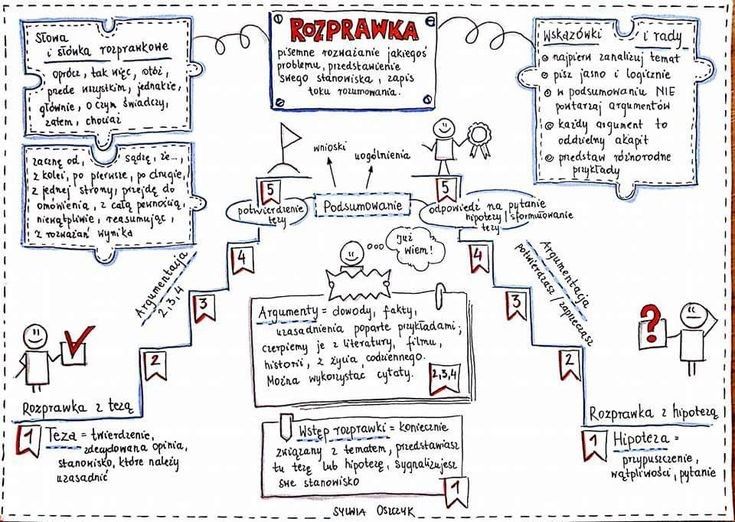 Słowa
i słówka rozprawkowe
oprócz, tak więc, otóż,
przede wszystkim, jednakże,
głównie, o czym świadczy,
zatem, chociaż
zacznę od, sądzę, że...,
z kolei, po pierwsze, po drugie,
z jednej strony, przejdę do
omówienia, z całą pewnością,
niewątpliwie, reasumując,
z rozważań wynika
ROZPRAWKA
pisemne rozważanie jakiegoś
problemu, przedstawienie
swego stanowiska i zapis
toku rozumowania.
Wskazówki i rady
najpierw zanalizuj temat
pisz jasno i logicznie
w podsumowaniu NIE
powtarzaj argumentów
każdy argument to
oddzielny akapit
przedstaw różnorodne
przykłady
wnioski
uogólnienia
5
5
potwierdzenie
tezy
Podsumowanie
odpowiedź na pytanie
hipotezy / sformułowanie
tezy
Już
wiem!
4
4
Argumentacja
2, 3, 4
Argumentacja
potwierdzasz / zaprzeczasz
3
3
2
2
Argumenty = dowody, fakty,
uzasadnienia poparte przykładami;
czerpiemy je z literatury, filmu,
historii, z życia codziennego.
Można wykorzystać cytaty.
2,3,4
?
Rozprawka z tezą
1
Teza = twierdzenie,
zdecydowana opinia,
stanowisko, które należy
uzasadnić
Wstęp rozprawki = koniecznie
związany z tematem, przedstawiasz
tu tezę lub hipotezę, sygnalizujesz
swe stanowisko
1
Rozprawka z hipotezą
1
Hipoteza =
przypuszczenie,
wątpliwości, pytanie
SYLWIA OSZCZYK